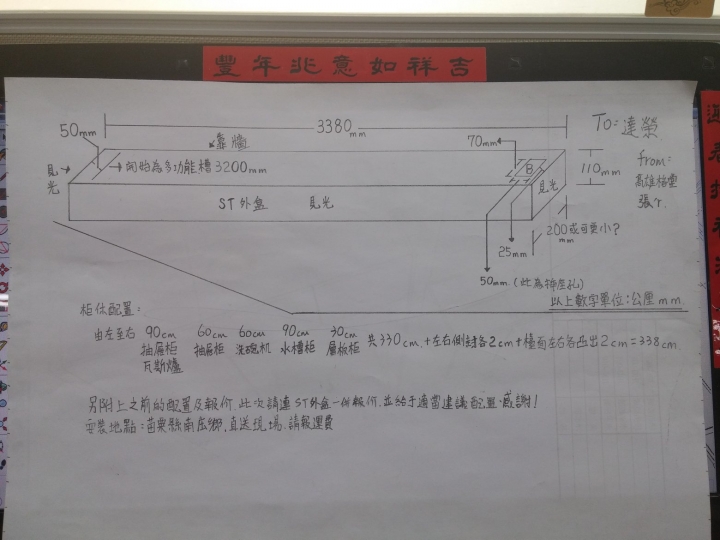 豐年兆意如祥吉
To=達榮
from=
高雄柏霊
張
3380mm
50mm
靠牆
70mm
110mm
見光
開始為多功能槽3200mm
見光
ST外盒 見光
200或可更小?
mm
25mm
50mm.(此為轉座孔)
以上數字單位:公厘mm
柜体配置:
由左至右 90cm 60cm 60cm 90cm 30cm 共330cm.+左右側封各2cm+檯面左右各凸出2cm=338cm
抽屜柜 抽屜柜 洗碗机 水槽柜 層板柜
瓦斯爐
另附上之前的配置及報价.此次請連ST外盒一併報价.並給予適當建議配置.感謝!
安裝地點:苗栗縣南庄鄉.直送現場.請報運費